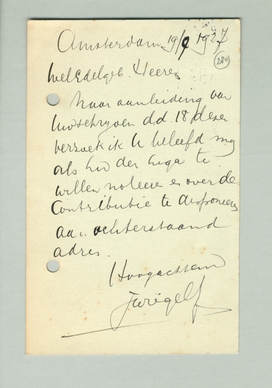 Amsterdam 19/9 1927
289
WelEdelgeb. Heeren
Naar aanleiding van
Uw schrijven d.d. 18 dezer
verzoek ik U beleefd mij
als lid der Liga te
willen noteeren en over de
Contributie te disponeeren
aan achterstaand
adres.
Hoogachtend